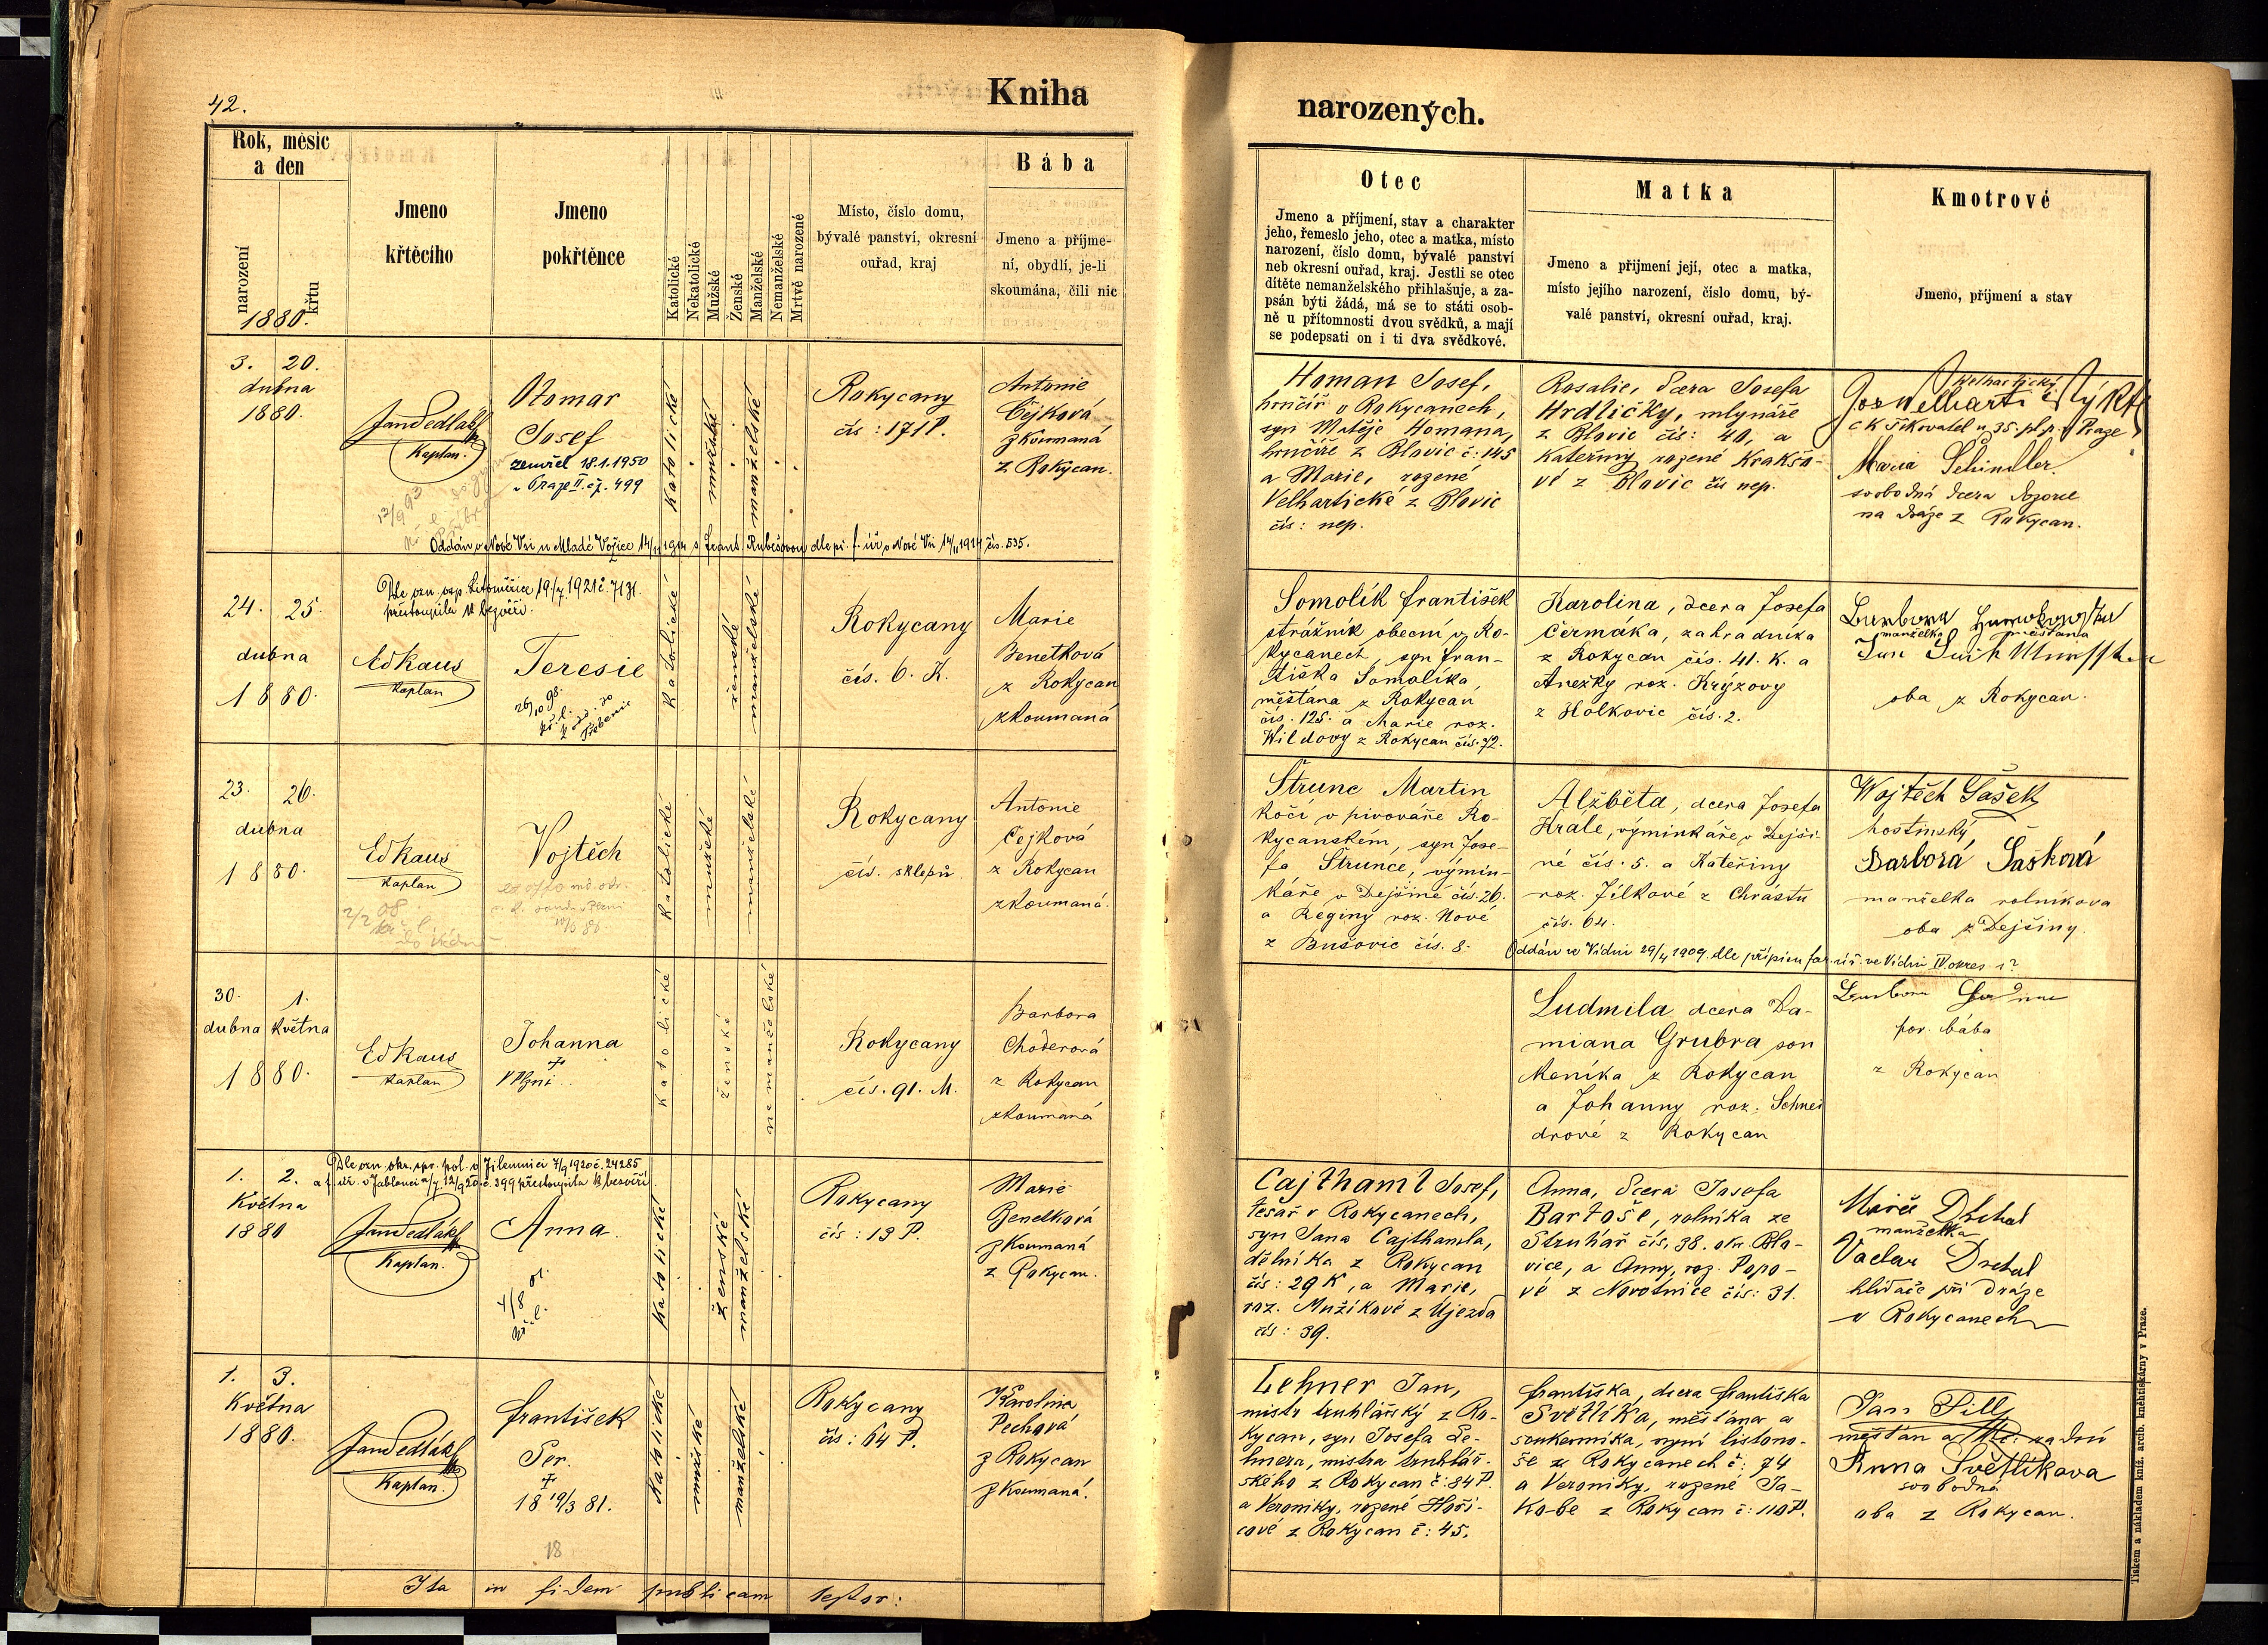 42.
Kniha
narozených.
Rok, měsíc
a den
narození
křtu
1880.
Jmeno
křtěcího
Jmeno
pokřtěnce
Katolické
Nekatolické
Mužské
Ženské
Manželské
Nemanželské
Mrtvě narozené
Místo, číslo domu,
bývalé panství, okresní
ouřad, kraj
Bába
Jmeno a příjme-
ní, obydlí, je-li
skoumána, čili nic
Otec
Jmeno a příjmení, stav a charakter
jeho, řemeslo jeho, otec a matka, místo
narození, číslo domu, bývalé panství
neb okresní ouřad, kraj. Jestli se otec
dítěte nemanželského přihlašuje, a za-
psán býti žádá, má se to státi osob-
ně u přítomnosti dvou svědků, a mají
se podepsati on i ti dva svědkové.
Matka
Jmeno a přijmení její, otec a matka,
místo jejího narození, číslo domu, bý-
valé panství, okresní ouřad, kraj.
Kmotrové
Jmeno, příjmení a stav
3. 20.
dubna
1880.
Jan Sedláček
Kaplan.
Otomar
Josef
zemřel 18.1.1950
v Praze II. čp. 499
Katolické
mužské
manželské
Rokycany
čís: 171 P.
Antonie
Čejková
zkoumaná
z Rokycan.
Homan Josef,
hrnčíř v Rokycanech,
syn Matěje Homana,
hrnčíře z Blovic č: 145
a Marie, rozené
Velhartické z Blovic
čís: nep.
Rosalie, dcera Josefa
Hrdličky, mlynáře
z Blovic čís: 40, a
Kateřiny rozené Krakšo-
vé z Blovic čís nep.
Velhartický
c k šikovatel u 35. pl. p. v Praze
Maria Schindler.
svobodná dcera dozorce
na dráze z Rokycan.
Oddán v Nové Vsi u Mladé Vožice 14/II 1914 s Frant. Rubešovou dle př. f. úř. v Nové Vsi 14/II 1914 čís. 535.
24. 25.
dubna
1880.
Dle ozn. osp. Litoměřice 19/7. 1921 č. 7131.
přestoupila k bezvěří.
Ed Kaus
Kaplan
Teresie
26/10 98.
kř. l.
Katolické
ženské
manželské
Rokycany
čís. 6. K.
Marie
Benetková
z Rokycan
zkoumaná
Somolík František
strážník obecní v Ro-
kycanech, syn Fran-
tiška Somolíka,
měšťana z Rokycan
čís. 125. a Marie roz.
Wildovy z Rokycan čís. 72.
Karolina, dcera Josefa
Čermáka, zahradníka
z Rokycan čís. 41. K. a
Anežky roz. Krýzovy
z Holkovic čís. 2.
Barbora
manželka měšťana
oba z Rokycan.
23. 26.
dubna
1880.
Ed Kaus
Kaplan
2/2 08.
Vojtěch
Katolické
mužské
manželské
Rokycany
čís. sklepů
Antonie
Čejková
z Rokycan
zkoumaná.
Štrunc Martin
kočí v pivováře Ro-
kycanském, syn Jose-
fa Štrunce, výmin-
káře v Dejšině čís. 26.
a Reginy roz. Nové
z Bušovic čís. 8.
Alžběta, dcera Josefa
Krále, výminkáře v Dejši-
né čís. 5. a Kateřiny
roz. Jílkové z Chrástu
čís. 64.
Wojtěch Šašek
hostinský
Barborá Šašková
manželka rolníkova
oba z Dejšiny.
Oddán ve Vídni 29/4 1909. dle přípisu far. úř. ve Vídni IV. okres
30. 1.
dubna května
1880.
Ed Kaus
Kaplan
Johanna
†
v Plzni.
Katolické
ženské
nemanželské
Rokycany
čís. 91. M.
Barbora
Choderová
z Rokycan
zkoumaná
Ludmila dcera Da-
miana Grubra sou
keníka z Rokycan
a Johanny roz. Schnei
drové z Rokycan
Barbora
por. bába
z Rokycan
1. 2.
Května
1880
Dle ozn. okr. spr. pol. v Jilemnici 7/9 1920 č. 24285
a f. úř. v Jablonci n/J. 12/9 20. č. 399 přestoupila k bezvěří.
Jan Sedláček
Kaplan.
Anna.
4/8 01.
kř. l.
Katolické
ženské
manželské
Rokycany
čís: 13 P.
Marie
Benetková
zkoumaná
z Rokycan.
Cajthaml Josef,
tesař v Rokycanech,
syn Jana Cajthamla,
dělníka z Rokycan
čís: 29 K, a Marie,
roz. Mužíkové z Újezda
čís: 39.
Anna, dcera Josefa
Bartoše, rolníka ze
Struhař čís. 38. okr. Blo-
vice, a Anny, roz. Popo-
vé z Novotnice čís: 31.
Marie Drchal
manželka
Vaclav Drchal
hlídače při dráze
v Rokycanech
1. 3.
Května
1880.
Jan Sedláček
Kaplan.
František
Ser.
†
18 19/3 81.
Katolické
mužské
manželské
Rokycany
čís: 64 P.
Karolina
Pechová
z Rokycan
zkoumaná.
Lehner Jan,
mistr truhlářský z Ro-
kycan, syn Josefa Le-
hnera, mistra truhlář-
ského z Rokycan č: 84 P.
a Veroniky, rozené Hoři-
cové z Rokycan č: 45.
Františka, dcera Františka
Světlíka, měšťana a
soukenníka, nyní listono-
še v Rokycanech č: 74
a Veroniky, rozené Ja-
kobe z Rokycan č: 110 P.
Jan Pill
měšťan a
Anna Světlíkova
svobodná
oba z Rokycan.
18
Ita in fidem publicam testor:
Tiskem a nákladem kníž. arcib. knihtiskárny v Praze.